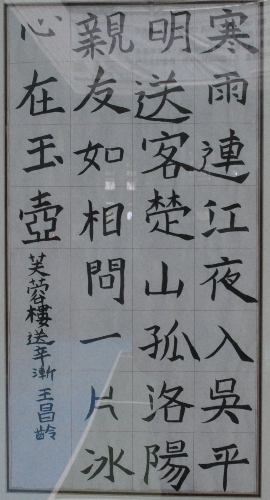 寒雨連江夜入吳平
明送客楚山孤洛陽
親友如相問一片冰
心在玉壺
芙蓉樓送辛漸王昌齡